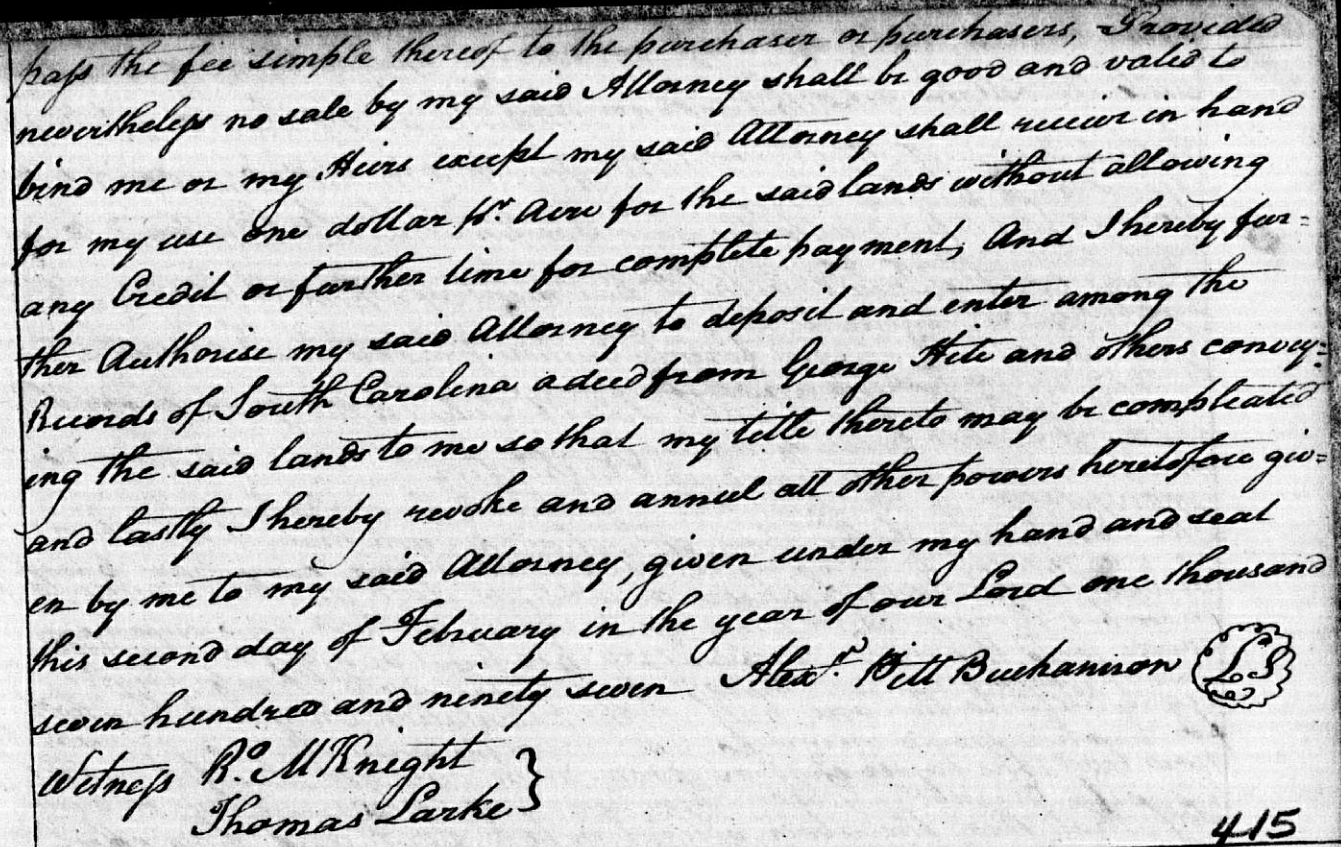 pass the fee simple thereof to the purchaser or purchasers, Provided
nevertheless no sale by my said Attorney shall be good and valid to
bind me or my Heirs except my said Attorney shall receive in hand
for my use one dollar pr. Acre for the said lands without allowing
any Credit or further time for complete payment, And I hereby fur=
ther Authorise my said Attorney to deposit and enter among the
Records of South Carolina a deed from George Hite and others convey=
ing the said lands to me so that my title thereto may be compleated
and lastly I hereby revoke and annul all other powers heretofore giv=
en by me to my said Attorney, given under my hand and seal
this second day of February in the year of our Lord one thousand
seven hundred and ninety seven Alexr. Pitt Buchannon LS
Witness Ro. McKnight
Thomas Larke
415